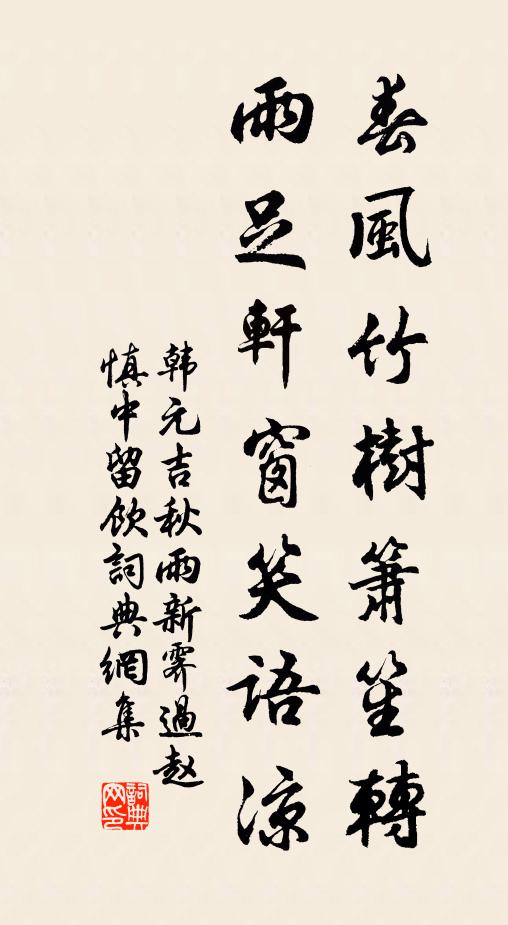 春風竹樹簫笙轉
雨足軒窗笑語涼
韩元吉秋雨新霽過赵
慎中留飲詞典網集
詞典
网印